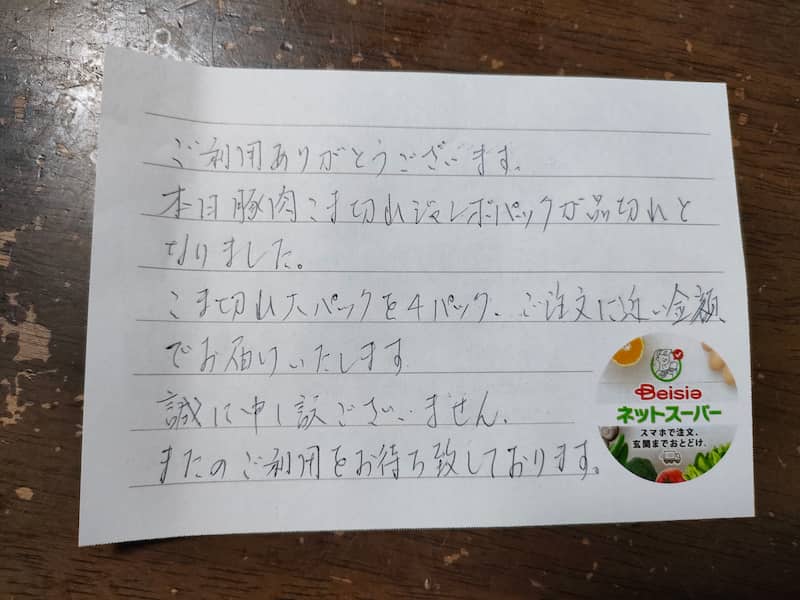 ご利用ありがとうございます。
本日豚肉こま切れジャンボパックが品切れと
なりました。
こま切れ大パックを4パック、ご注文に近い金額
でお届けいたします
誠に申し訳ございません。
またのご利用をお待ち致しております。
Beisia
ネットスーパー
スマホで注文、
玄関までおとどけ。